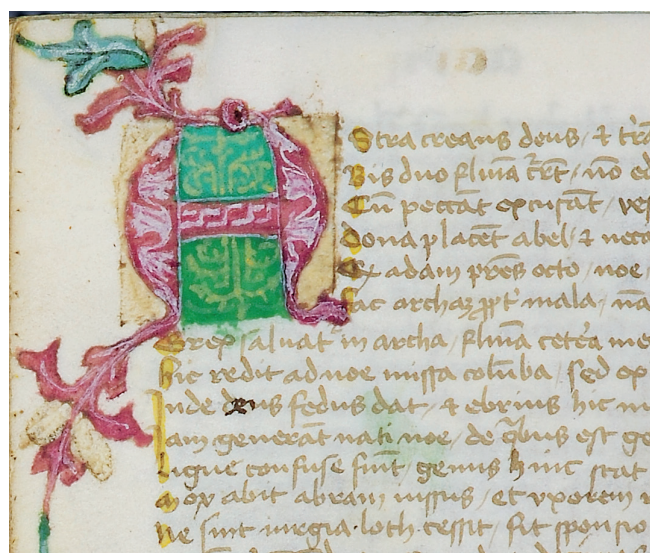 A
Stra creans deus / & t̄rā
Bis duo flumā c̄rt / nō ed
Cū peccāt excusāt / ves
Dona placēt abel / & neca
Ex adam p̄res octo / noe /
Fac archaꝫ p̄pt' mala / nā
Grex saluat' in archa / flumā cetēa me
Hic redit ad noe missa colūba / sed ex
Inde deus fedus dat / & ebrius hic nu
Iam generāt nati noe / de q̄bus est ge
Ligue confuse sūt / genus hinc stat
Mox abit abram iussus / et vxorem
Ne sint iurgia loth cessit / fit sponsio